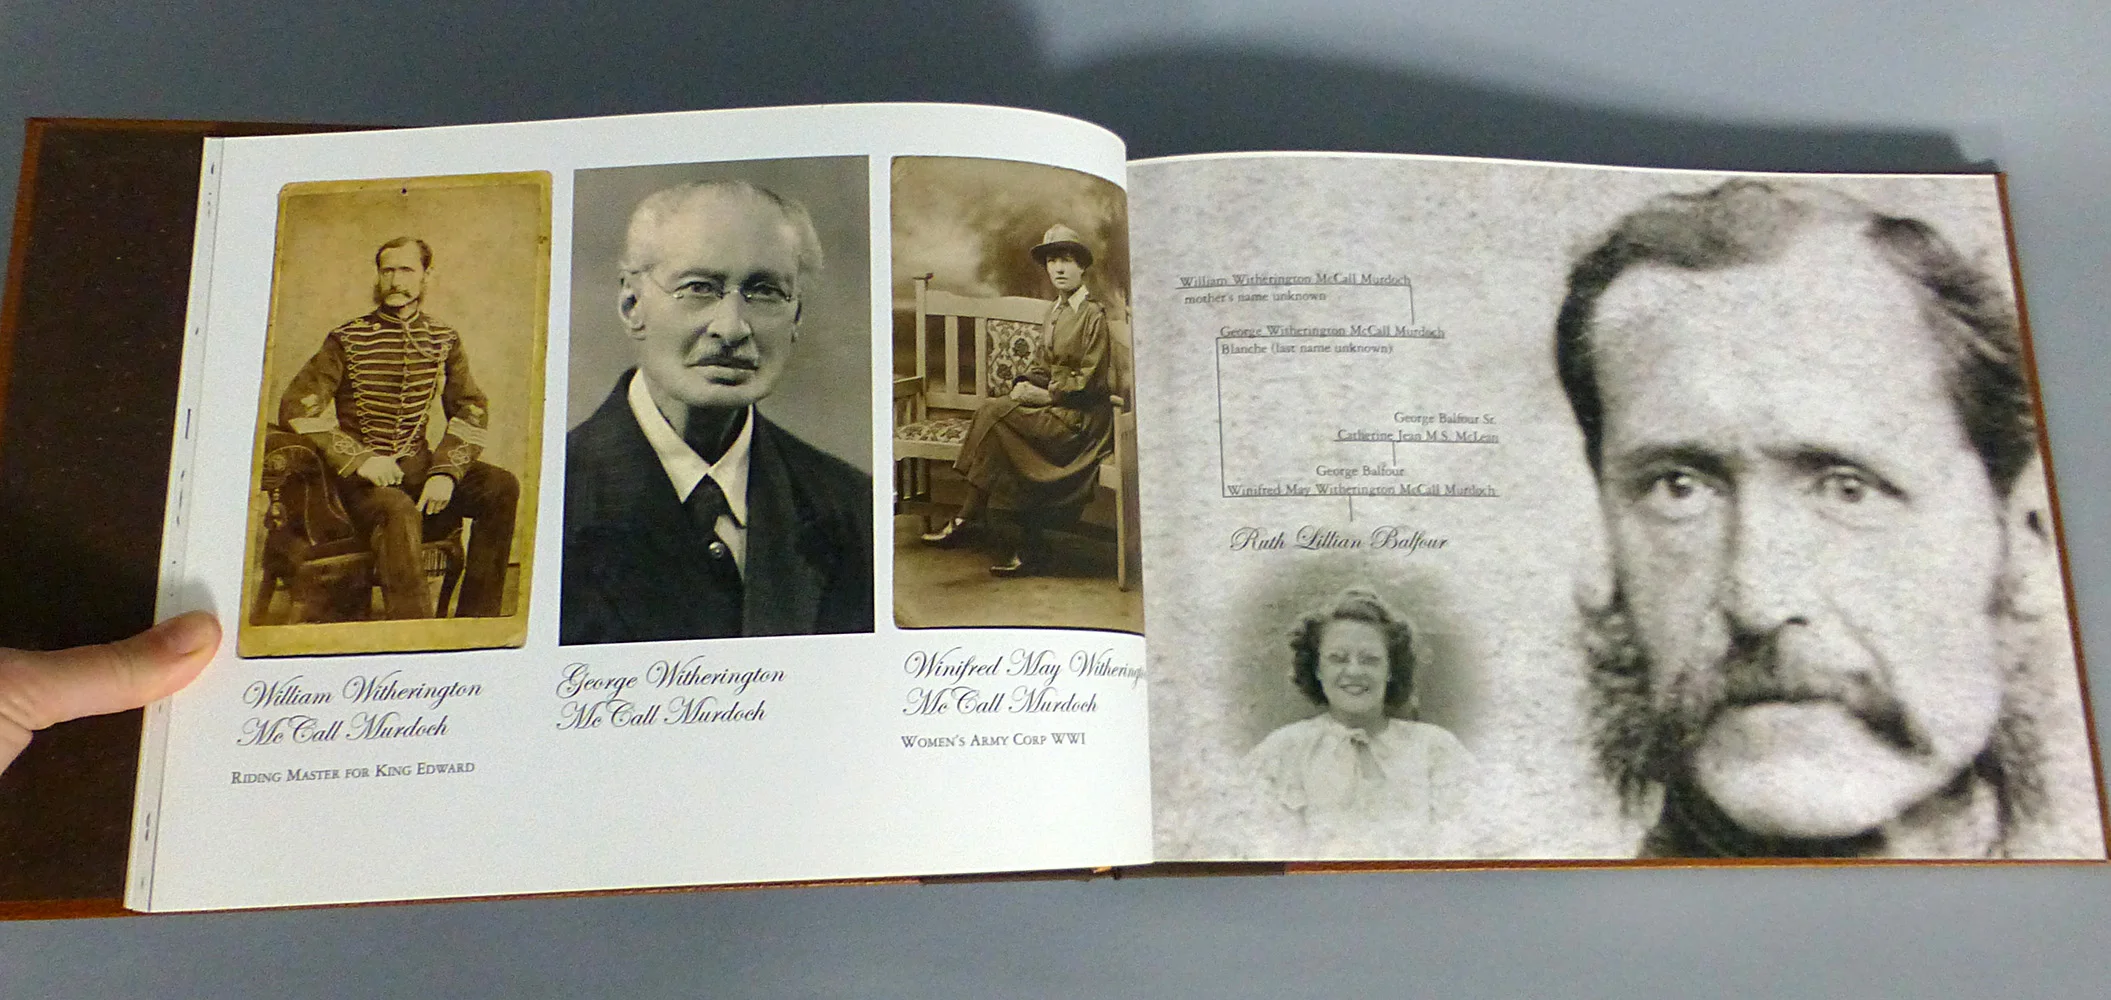 William Witherington
McCall Murdoch
Riding Master for King Edward
George Witherington
McCall Murdoch
Winifred May
McCall Murdoch
Women's Army Corp WWI
William Witherington McCall Murdoch
mother's name unknown
George Witherington McCall Murdoch
Blanche (last name unknown)
George Balfour Sr.
Catherine Jean M.S. McLean
George Balfour
Winifred May Witherington McCall Murdoch
Ruth Lillian Balfour